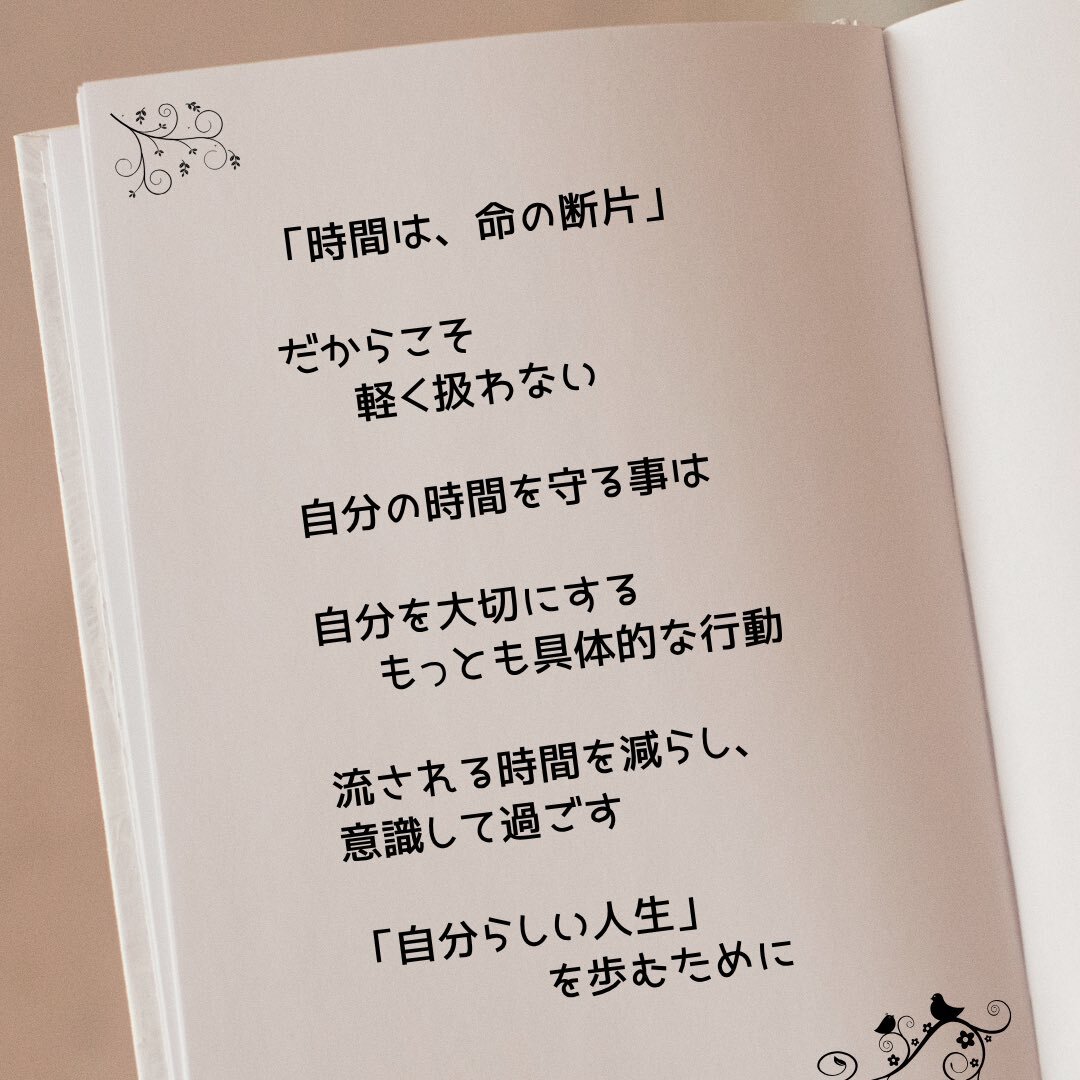 「時間は、命の断片」
だからこそ
軽く扱わない
自分の時間を守る事は
自分を大切にする
もっとも具体的な行動
流される時間を減らし、
意識して過ごす
「自分らしい人生」
を歩むために